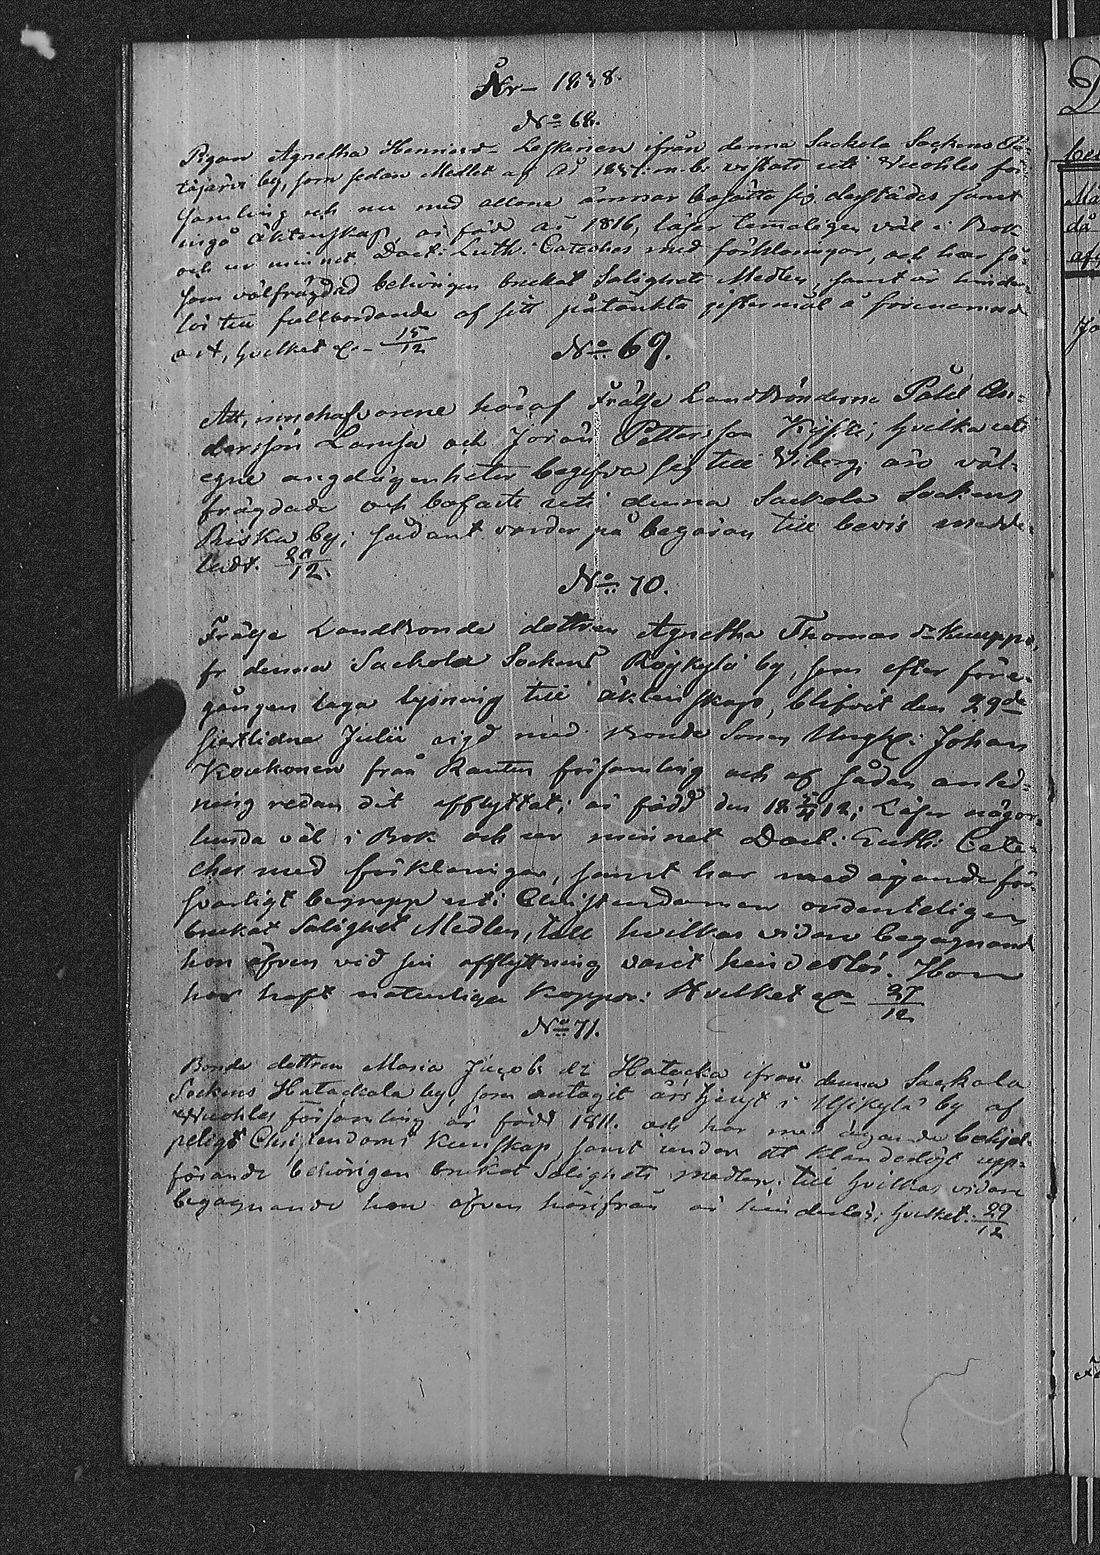 År 1838.
No 68.
Pigan Agnetha Henriksd. Leskinen ifrån denna Sackola Sockens
by, som sedan Medlet af År 1837 m.b. vistats uti Wuohles för-
samling och nu med allone ämnar bosätta sig derstädes samt
ingå Äktenskap är född år 1816, läser temeligen väl i Bok
och ur minnet Doct: Luth: Cateches med förklaringar, och har så-
som välfrägdad behörigen brukat Salighets Medlen, samt är hinder-
lös till fullbordande af sitt påtänkta giftermål å förenämnde
ort, hvilket &c. 15/12
No 69.
Att, innehafvarene häraf Frälse Landbönderne Påhl An-
dersson Lamsa och Jöran Pettersson Kiiski, hvilka uti
egne angelägenheter begifva sig till Viborg, äro väl-
frägdade och bofaste uti denna Sackola Sockens
Riska by; sådant varder på begäran till bevis medde-
ladt. 20/12.
No 70.
Frälse Landbonde dottren Agnetha Thomas dr Kemppi,
fr denna Sackola Sockens Röykylä by, som efter före-
gången laga lysning till äktenskap, blifvit den 29de
sistlidne Julii vigd med Bonde Sonen Ynglg: Johan
Koukonen från Rautus församling och af sådan anled-
ning redan dit afflyttat; är född den 18 12; Läser någor-
lunda väl i Bok och ur minnet Doct: Luth: Cate-
ches med förklaringar, samt har med ägande för-
svarligt begrepp uti Christendomen ordenteligen
brukat Salighets Medlen, till hvilkas vidare begagnande
hon äfven vid sin afflyttning varit hinderlös. Hon
har haft naturliga Koppor: Hvilket &c 27/12
No 71.
Bonde dottren Maria Jacobs dr Hatacka ifrån denna Sackola
Sockens Hatackala by, som antagit årstjenst i Ylsikylä by af
Wuohles församling är född 1811. och har med ägande behjel-
peligt Christendoms Kunskap, samt under ett klanderlöst upp-
förande behörigen brukat Salighets medlen; till hvilkas vidare
begagnande hon äfven härifrån är hinderlös; hvilket. 29/12